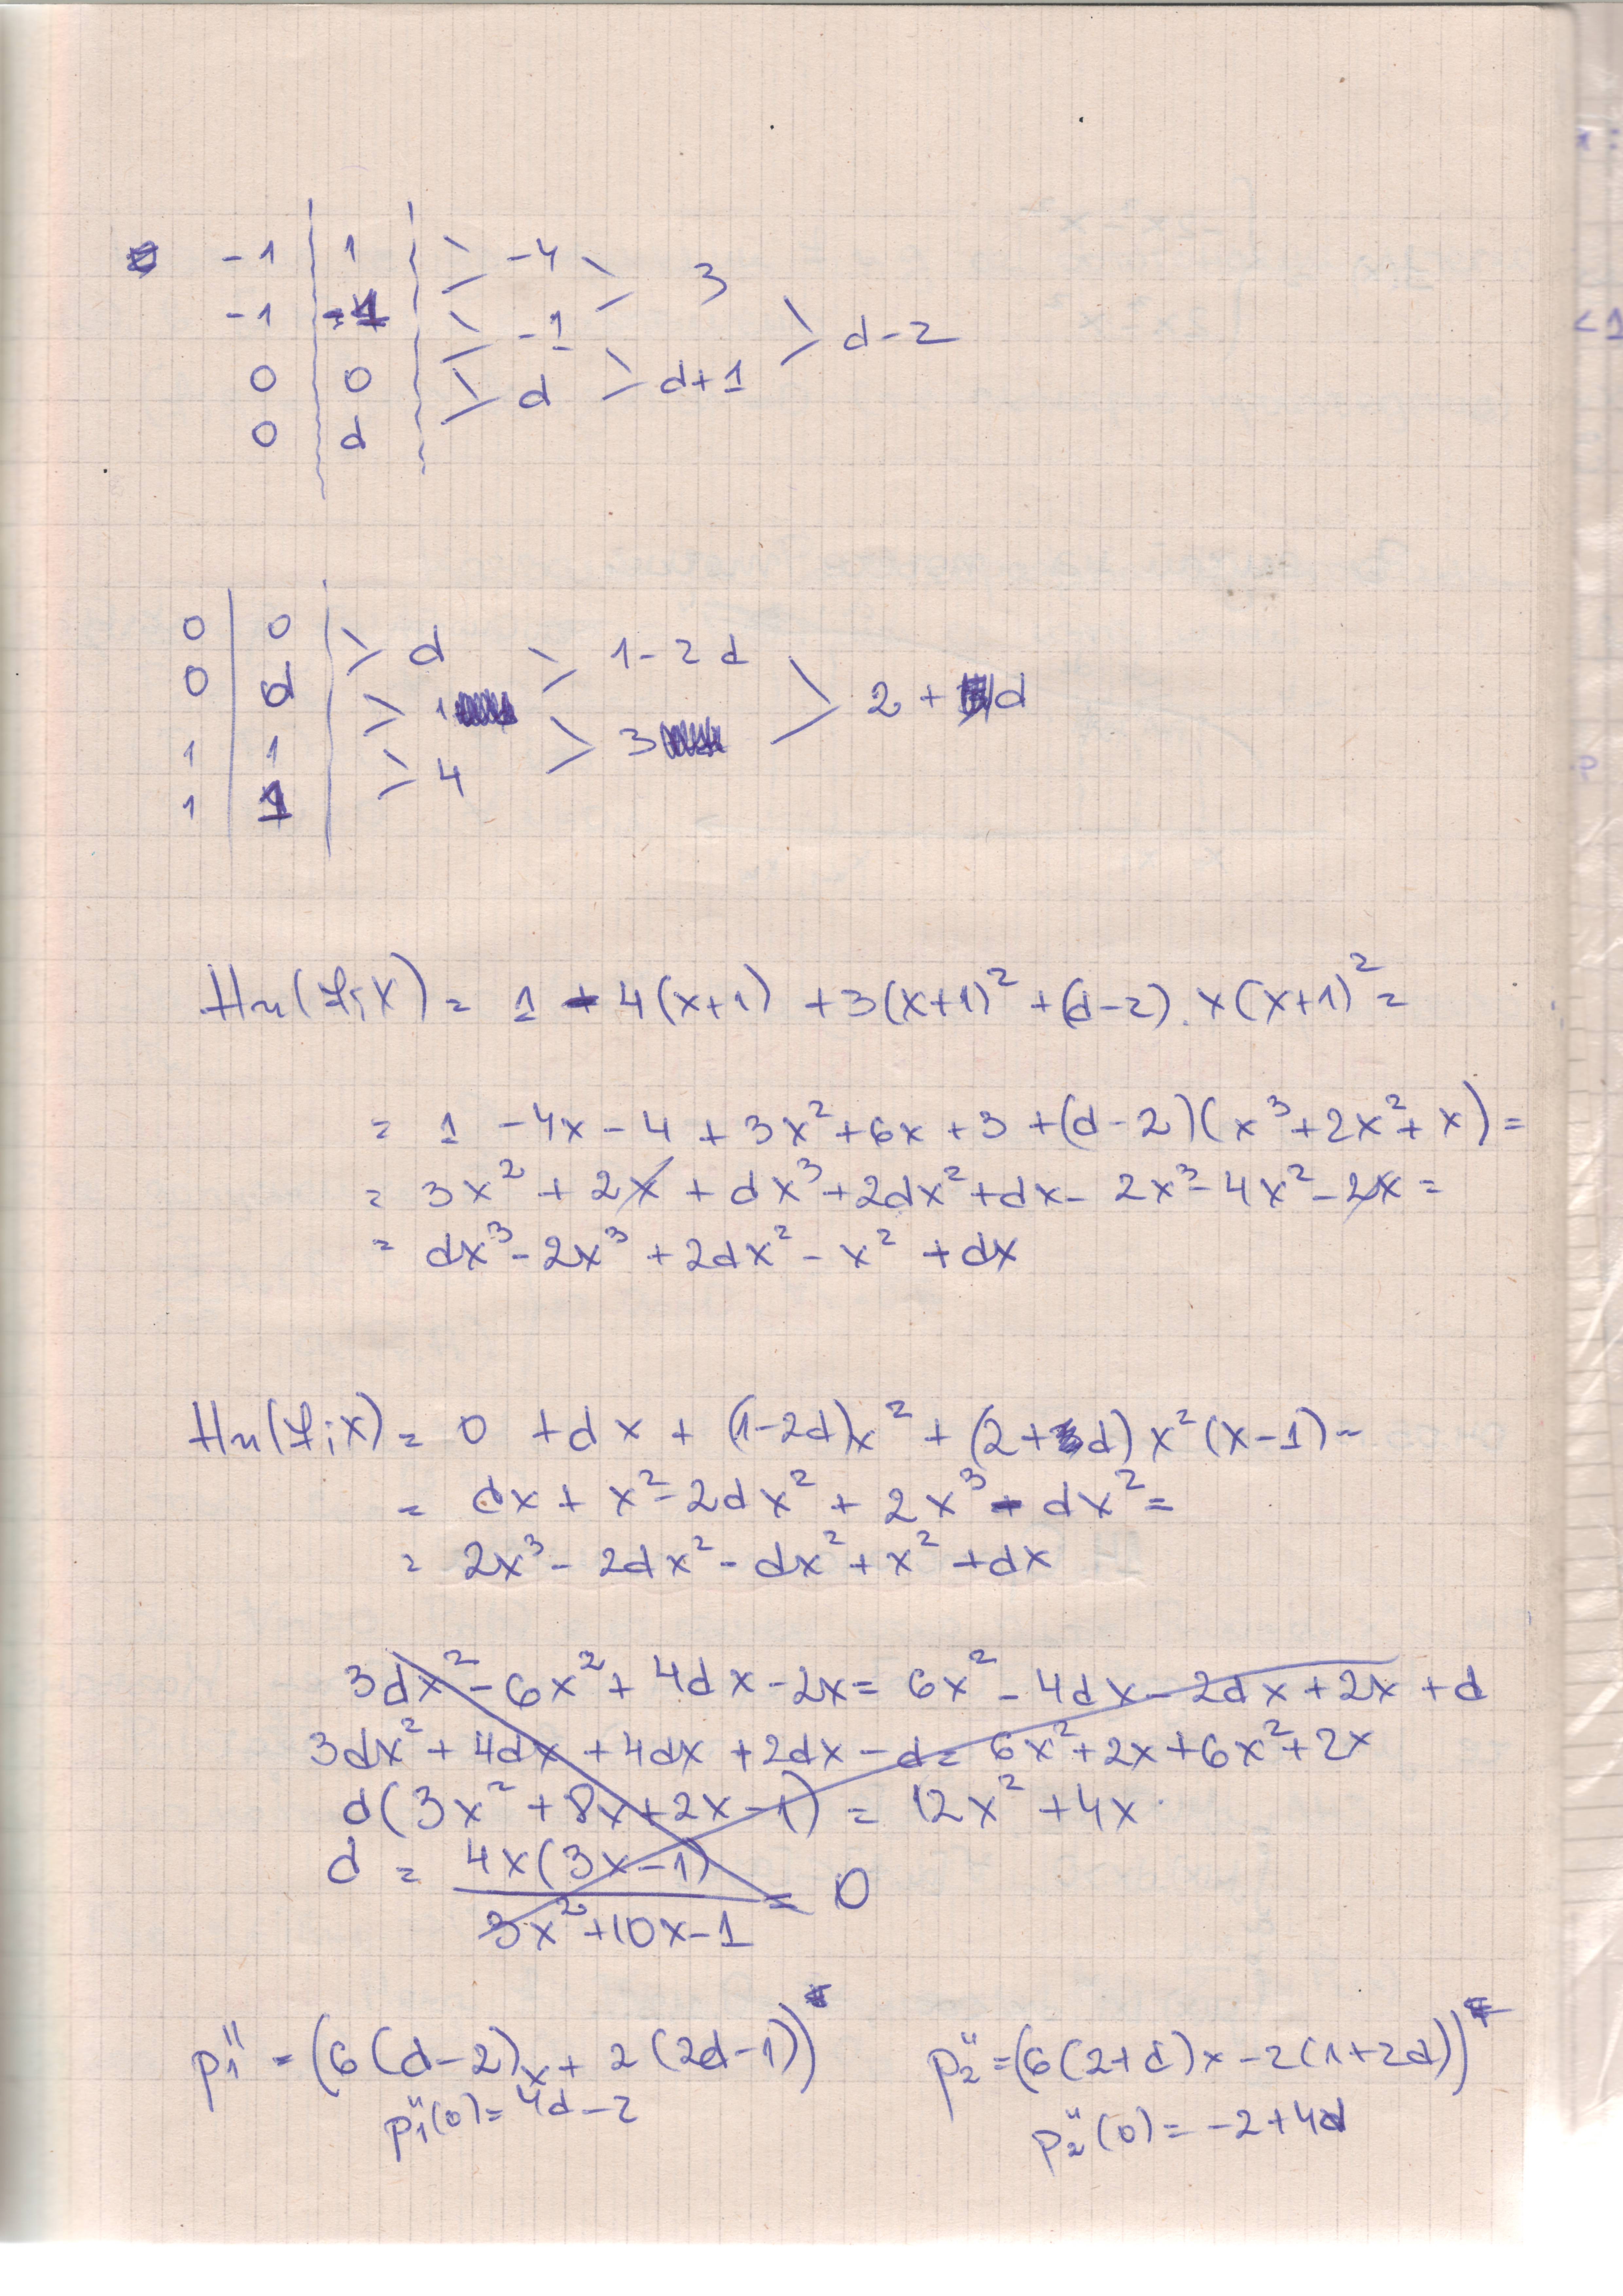 -1 | 1 > -4 > 3
-1 | -1 > -1 > d-2
0 | 0 > d > d+1
0 | d
0 | 0 > d > 1-2d
0 | d > 1 > 2+d
1 | 1 > 4 > 3
1 | 1
Hn(f;x) = 1 - 4(x+1) + 3(x+1)² + (d-2).x(x+1)² =
= 1 - 4x - 4 + 3x² + 6x + 3 + (d-2)(x³ + 2x² + x) =
= 3x² + 2x + dx³ + 2dx² + dx - 2x³ - 4x² - 2x =
= dx³ - 2x³ + 2dx² - x² + dx
Hn(f;x) = 0 + dx + (1-2d)x² + (2+d)x²(x-1) -
= dx + x² - 2dx² + 2x³ - dx² =
= 2x³ - 2dx² - dx² + x² + dx
3dx² - 6x² + 4dx - 2x = 6x² - 4dx - 2dx + 2x + d
3dx² + 4dx + 4dx + 2dx - d = 6x² + 2x + 6x² + 2x
d(3x² + 8x + 2x - 1) = 12x² + 4x
d = 4x(3x-1) / 3x² + 10x - 1 = 0
p₁'' = (6(d-2)x + 2(2d-1)) p₂'' = (6(2+d)x - 2(1+2d))
p₁''(0) = 4d - 2 p₂''(0) = -2 + 4d